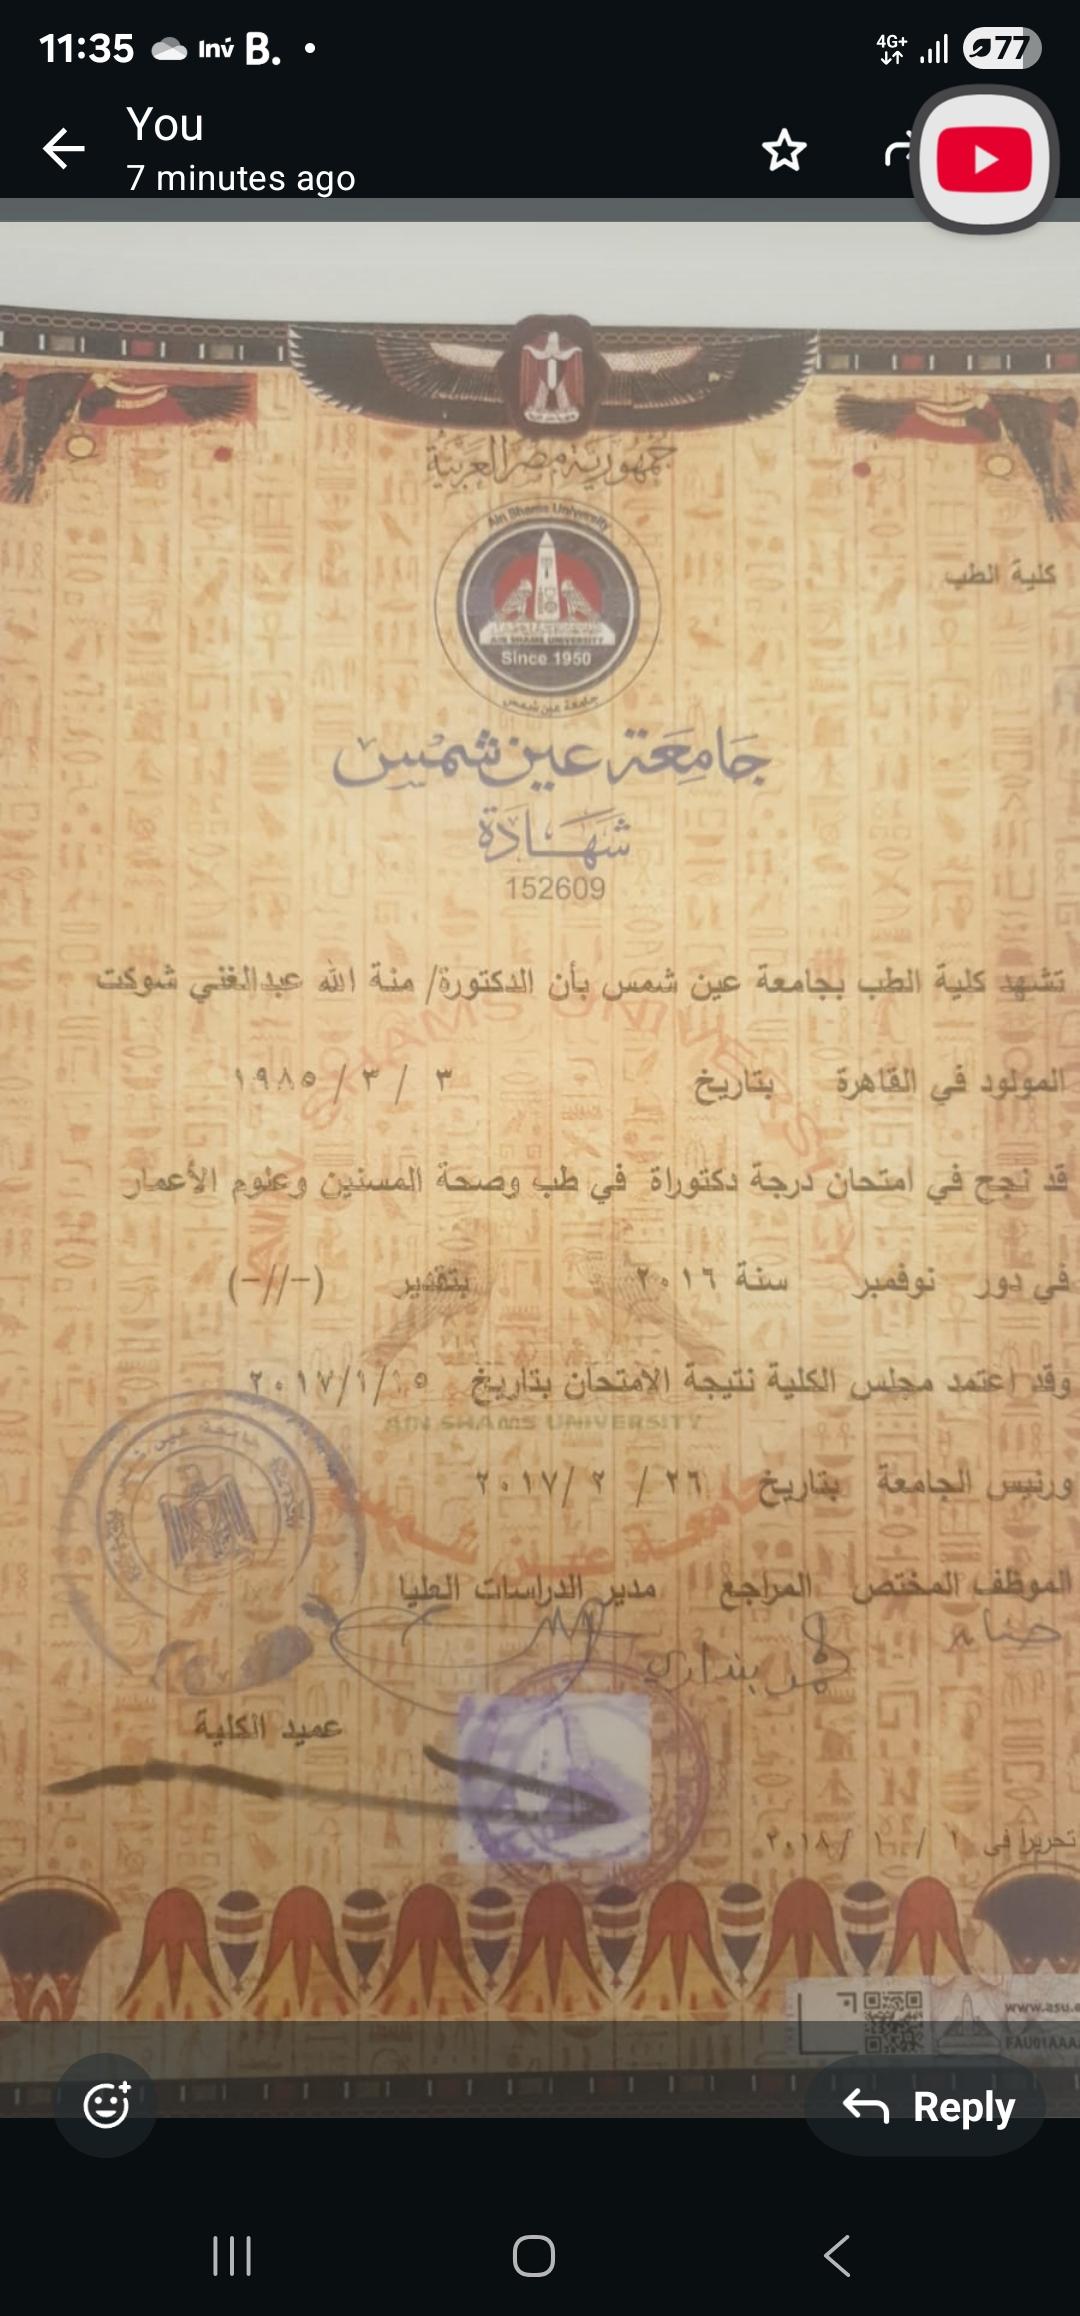 11:35 Inv B. 4G+ 77
You
7 minutes ago
جمهورية مصر العربية
Ain Shams University
كلية الطب
AIN SHAMS UNIVERSITY
Since 1950
جامعة عين شمس
جامعة عين شمس
شهادة
152609
تشهد كلية الطب بجامعة عين شمس بأن الدكتورة/ منة الله عبدالغني شوكت
المولود في القاهرة بتاريخ ٣ / ٣ / ١٩٨٥
قد نجح في امتحان درجة دكتوراة في طب وصحة المسنين وعلوم الأعمار
في دور نوفمبر سنة ٢٠١٦ بتقدير (-//-)
وقد اعتمد مجلس الكلية نتيجة الامتحان بتاريخ ٢٠١٧/١/١٥
AIN SHAMS UNIVERSITY
ورئيس الجامعة بتاريخ ٢٦ / ٢ /٢٠١٧
الموظف المختص المراجع مدير الدراسات العليا
عميد الكلية
تحريرا في ١ / ١٠ /٢٠١٨
www.asu.e
FAU01AAA
Reply